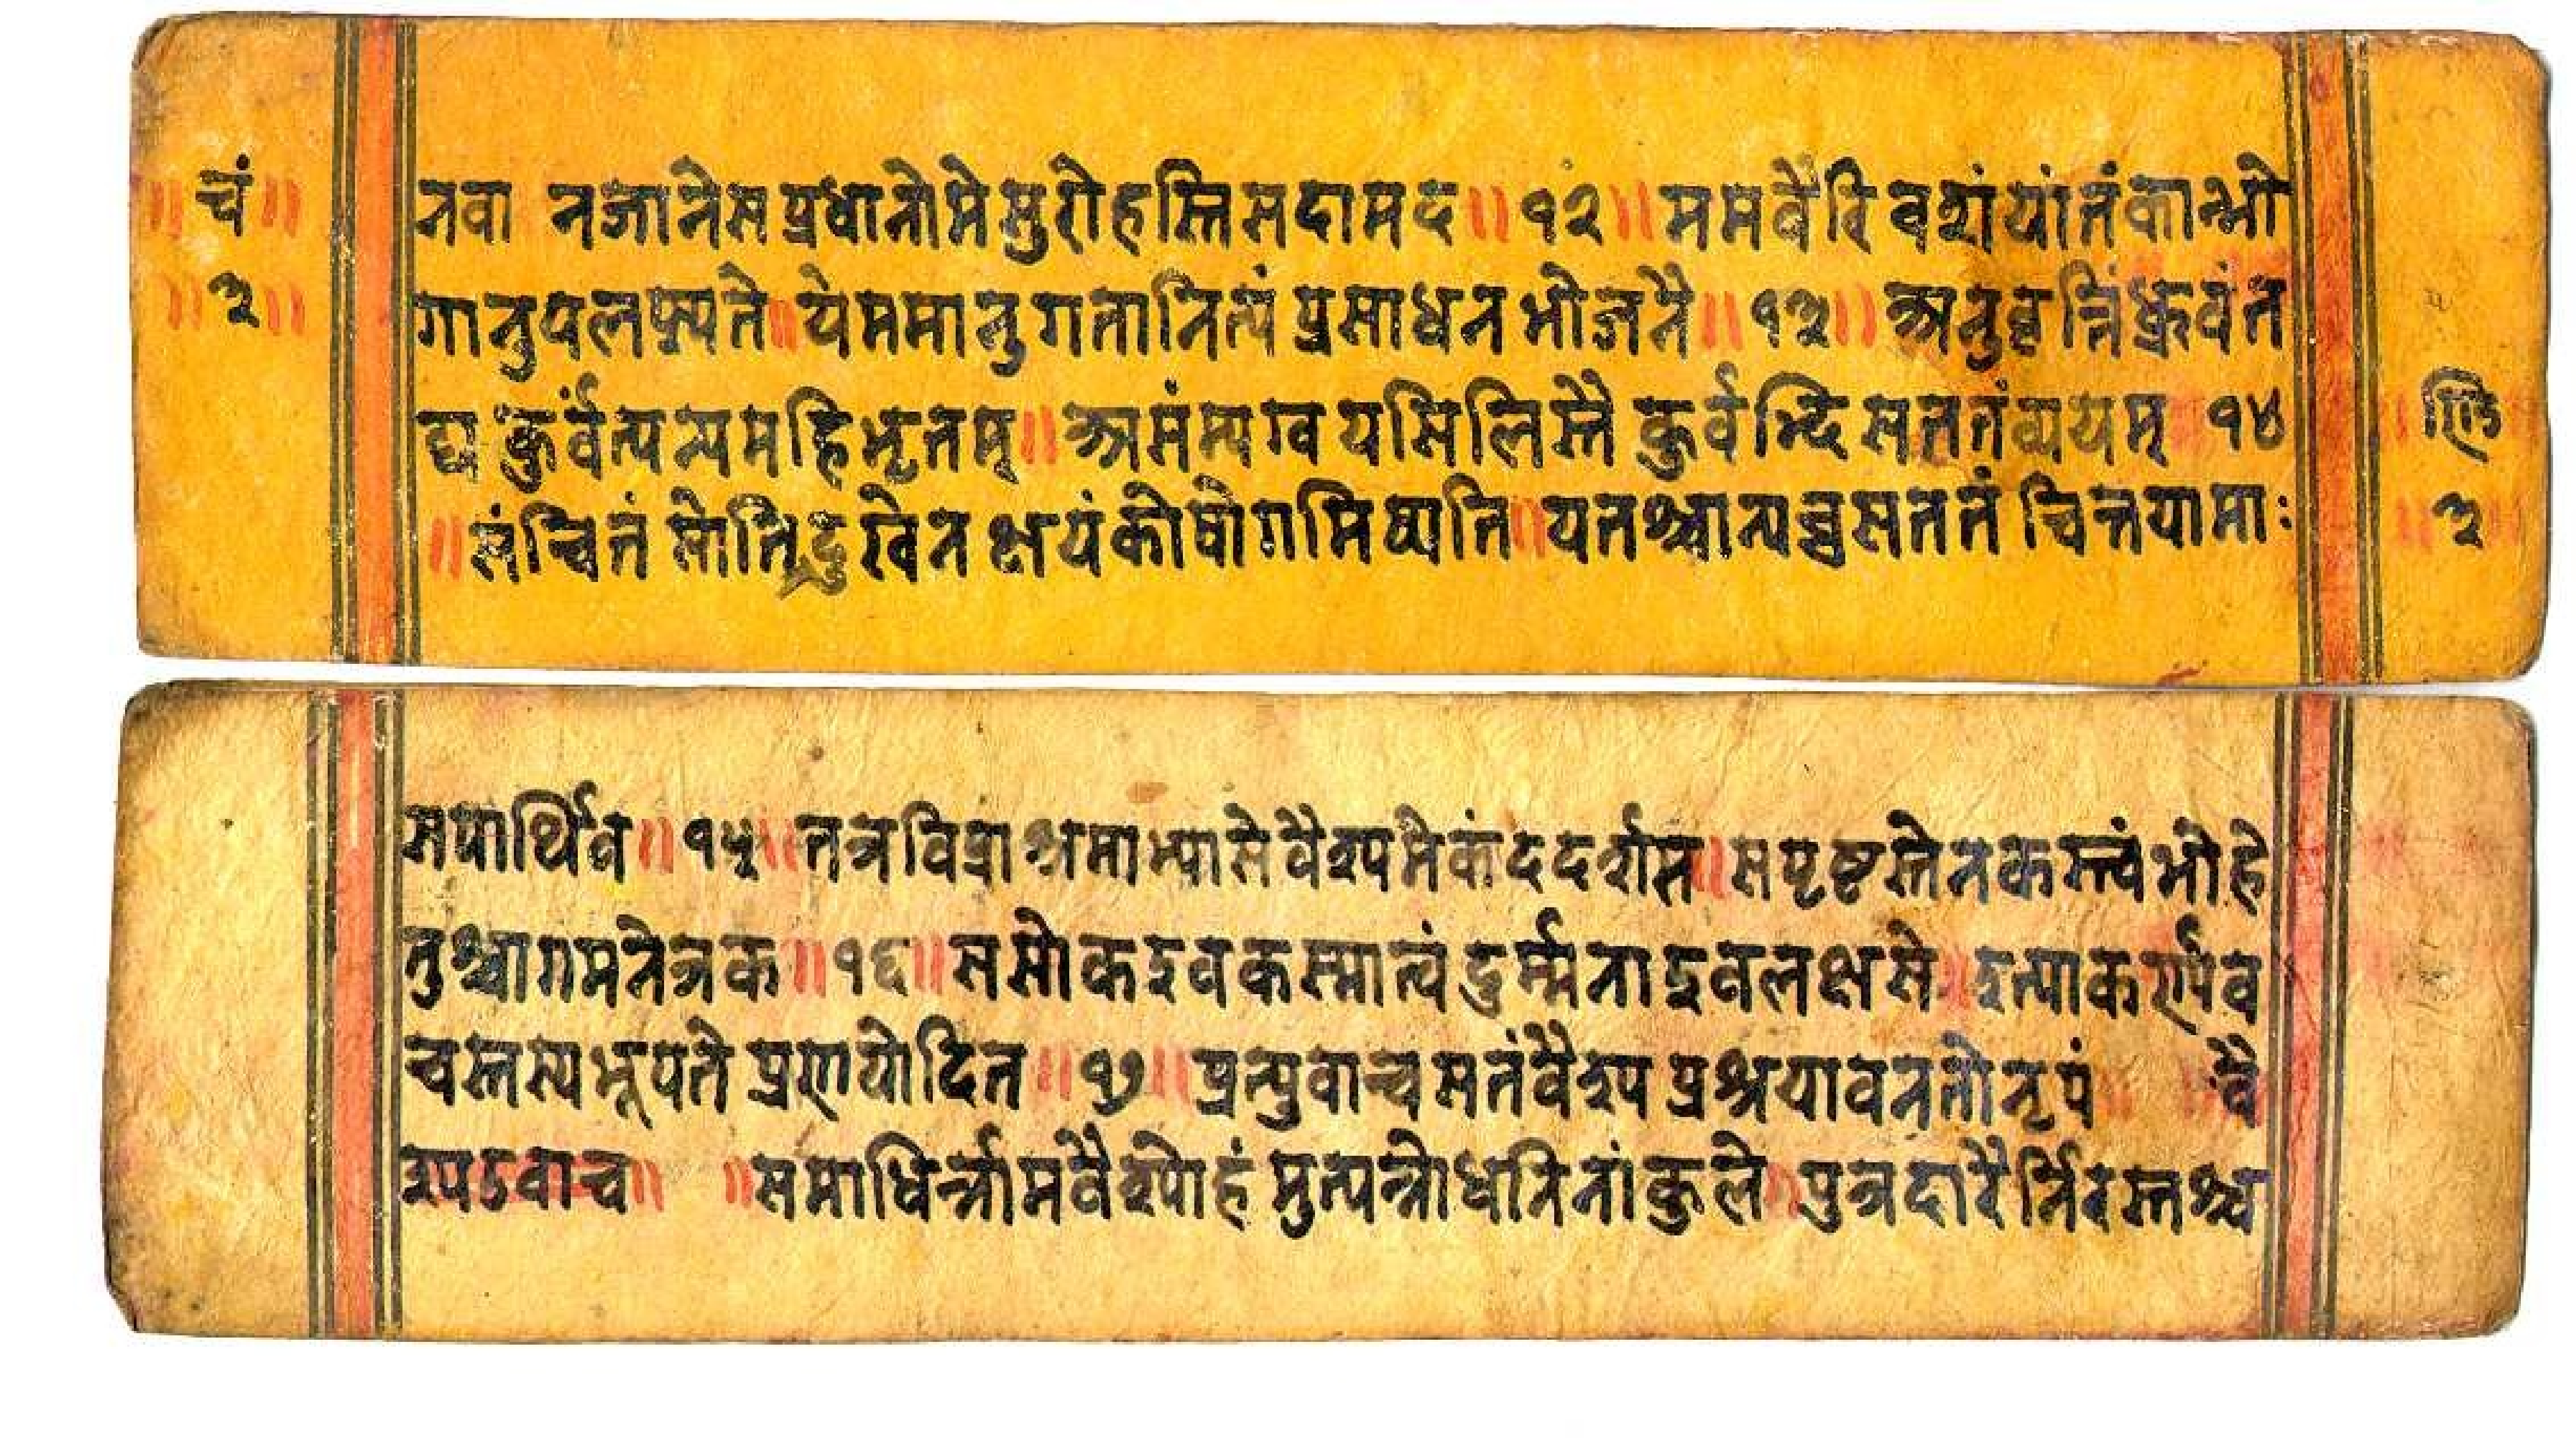 ॥ चं ॥
॥ ३ ॥
नवा नजानेस प्रधानोमे मुरोहस्तिसदामद ॥ १२ ॥ ममवैरि वशंयांतंकान्भो
गानुपलप्स्यते ॥ येममानुगतानित्यं प्रसाधनभोजनै ॥ १३ ॥ अनुवृत्तिंध्रुवंत
द्य कुर्वंत्यन्यमहिभृतम् ॥ असंम्यग्व यसिलिस्तै कुर्वन्दि सततंव्ययम् १४
॥ संञ्चितं सोतिदुखेन क्षयंकोषोगमिष्यति ॥ यतश्चान्यच्चसततं चिन्तयामाः
लि
॥ ३ ॥
सपार्थिव ॥ १५ ॥ तत्रविप्राश्रमाभ्यासे वैश्यमेकंददर्शस ॥ सपृष्टस्तेनकस्त्वंभोहे
तुश्चागमनेत्रक ॥ १६ ॥ ससोकइवकस्मात्वं दुर्म्मनाइवलक्षसे ॥ इत्याकर्ण्यव
चस्तस्यभूपते प्रणयोदित ॥ १७ ॥ प्रत्युवाच्चसतंवैश्य प्रश्रयावनतोनृपं वै
श्यउवाच ॥ ॥ समाधिर्न्नामवैश्योहं मुत्पन्नोधनिनांकुले ॥ पुत्रदारैर्न्निरस्तश्च